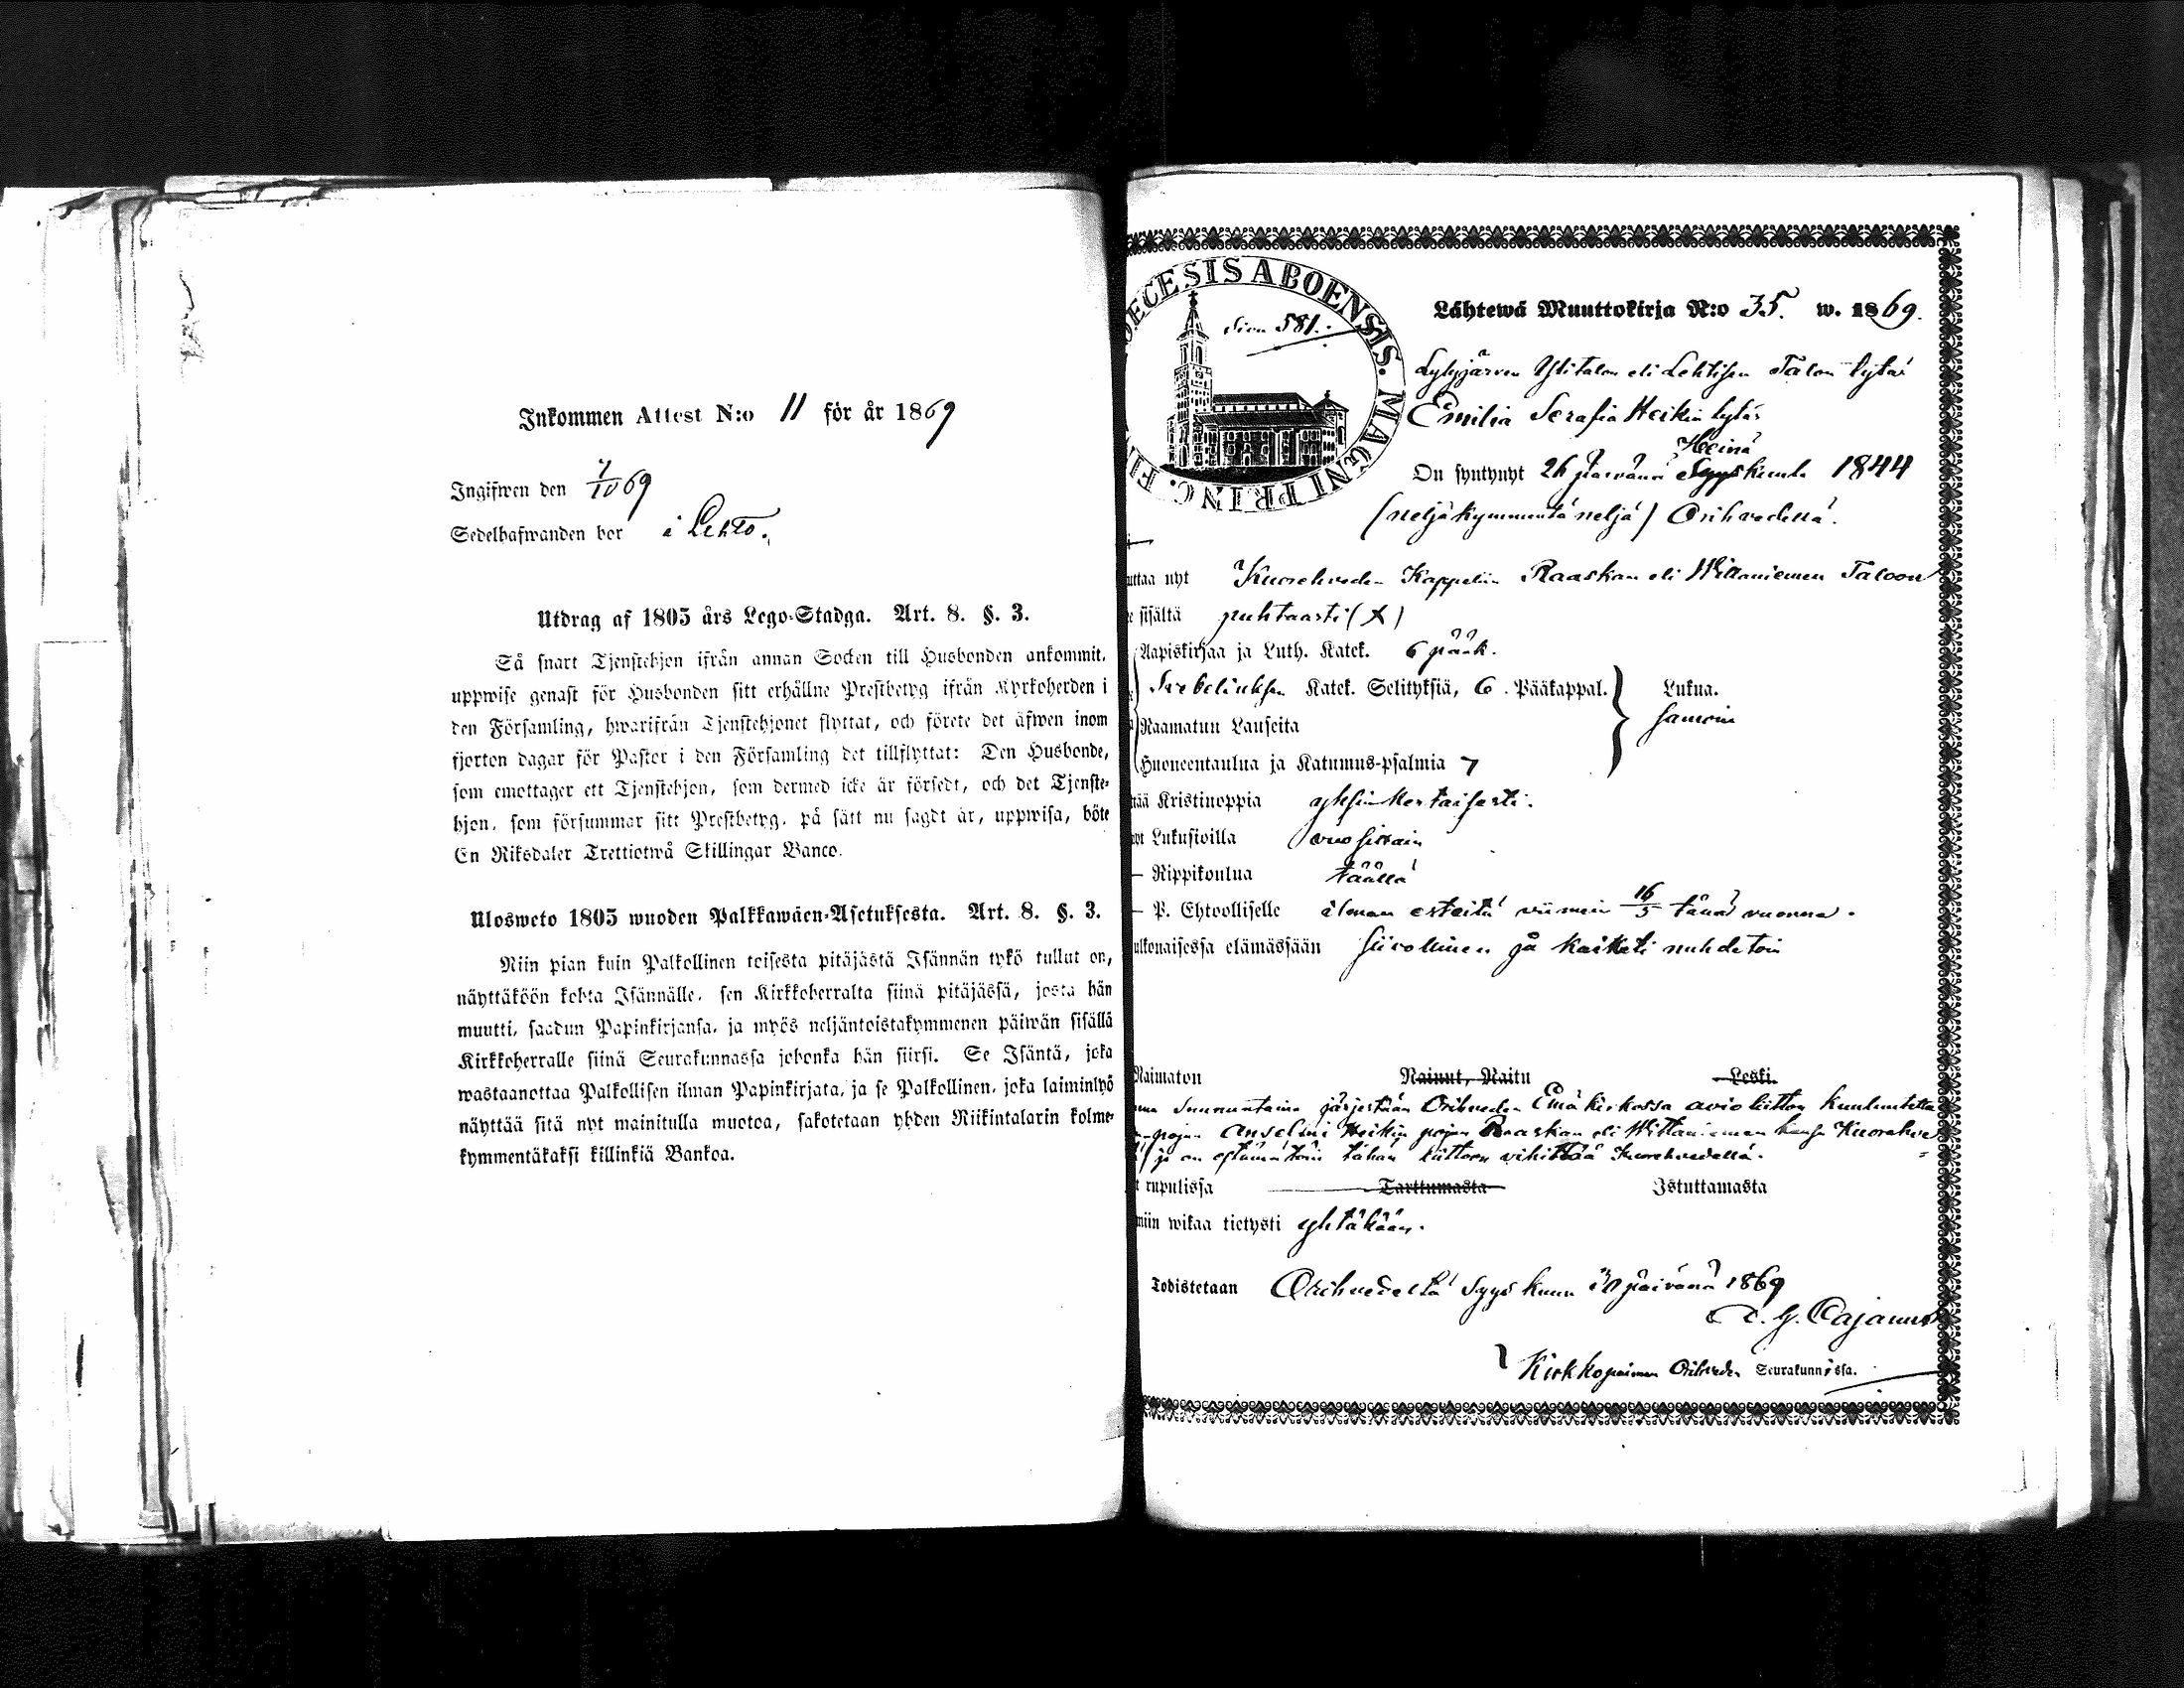 Inkommen Attest N:o 11 för år 1869
Ingifwen den 7/10 69
Sedelhafwanden bor i Lehto.
Utdrag af 1805 års Lego-Stadga. Art. 8. §. 3.
Så snart Tjenstehjon ifrån annan Socken till Husbonden ankommit,
uppwise genast för Husbonden sitt erhållne Prestbetyg ifrån Kyrkoherden i
den Församling, hwarifrån Tjenstehjonet flyttat, och förete det äfwen inom
fjorton dagar för Pastor i den Församling det tillflyttat: Den Husbonde,
som emottager ett Tjenstehjon, som dermed icke är försedt, och det Tjenste-
hjon, som försummar sitt Prestbetyg, på sätt nu sagdt är, uppwisa, böte
En Riksdaler Trettiotwå Skillingar Banco.
Ulosweto 1805 wuoden Palkkawäen-Asetuksesta. Art. 8. §. 3.
Niin pian kuin Palkollinen toisesta pitäjästä Isännän tykö tullut on,
näyttäköön kohta Isännälle, sen Kirkkoherralta siinä pitäjässä, josta hän
muutti, saadun Papinkirjansa, ja myös neljäntoistakymmenen päiwän sisällä
Kirkkoherralle siinä Seurakunnassa johonka hän siirsi. Se Isäntä, joka
wastaanottaa Palkollisen ilman Papinkirjata, ja se Palkollinen, joka laiminlyö
näyttää sitä nyt mainitulla muotoa, sakotetaan yhden Riikintalarin kolme-
kymmentäkaksi killinkiä Bankoa.
ECESIS ABOENSIS. MAGNI PRINC. FI
Sivu 581.
Lähtewä Muuttokirja N:o 35. w. 1869.
Lylyjärven Ylitalon eli Lehtisen Talon tytär
Emilia Serafia Heikin tytär
Heinä
On syntynyt 26 päivänä Syyskuuta 1844
(neljäkymmentä neljä) Orihvedellä.
uttaa nyt Kuorehveden Kappeliin Raaskan eli Wittaniemen Taloon
e sisältä puhtaasti (x)
Aapiskirjaa ja Luth. Katek. 6 pääk.
Svebeliuksen Katek. Selityksiä, 6. Pääkappal. Lukua.
Raamatun Lauseita samoin
Huoneentaulua ja Katumus-psalmia 7
tää Kristinoppia yksinkertaisesti.
yt Lukusioilla vuosittain
— Rippikoulua täällä
— P. Ehtoolliselle ilman esteitä viimein 16/5 tänä vuonna.
ulkonaisessa elämässään siivollinen ja kaiketi nuhdetoin
Naimaton Nainut, Naitu Leski.
sunnuntaina järjestään Orihveden Emäkirkossa avioliittoon kuulutettu
pojan Anselmi Heikin pojan Raaskan eli Wittaniemen kanssa Kuorehve=
ja on estämätöin tähän liittoon vihittää Kuorehvedellä.
t rupulissa Tarttumasta Istuttamasta
miin wikaa tietysti yhtäkään.
Todistetaan Orihvedeltä Syys kuun 20 päivänä 1869
A. G. Cajanus
Kirkkopaimen Orihveden Seurakunnassa.